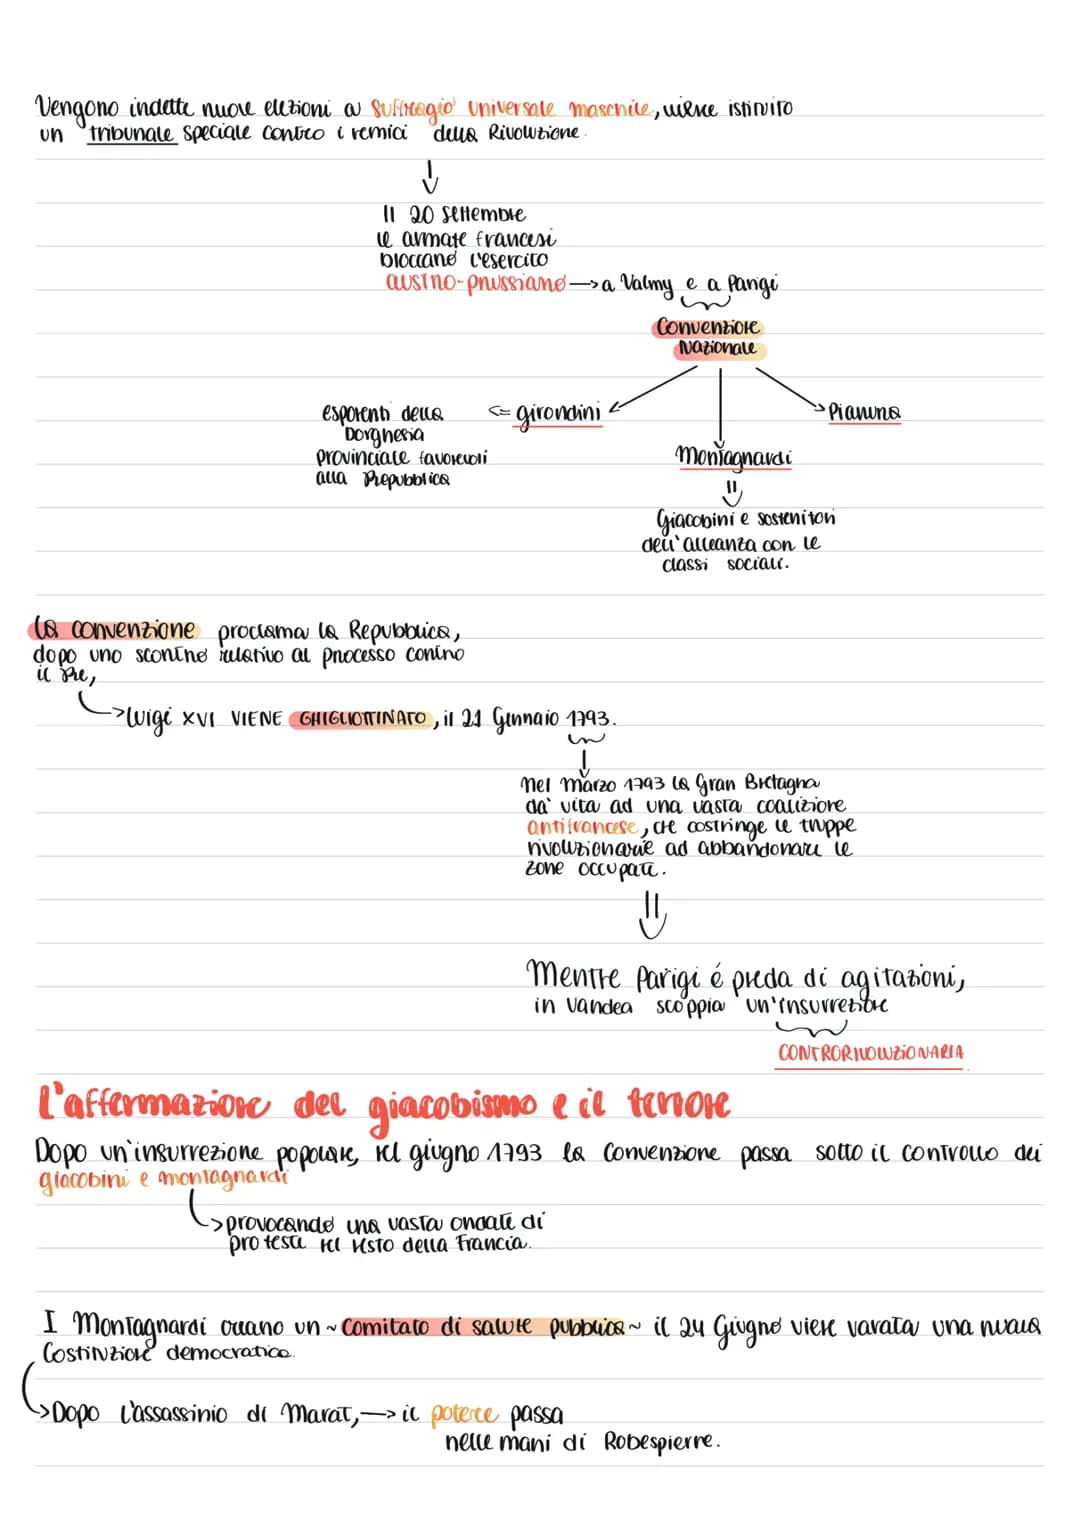 Vengono indette nuove elezioni a Suffragio universale maschile, viene istituito
un tribunale speciale contro i nemici della Rivoluzione.
Il 20 settembre
le armate francesi
bloccano l'esercito
austro-prussiano → a Valmy e a Parigi
Convenzione
Nazionale
esponenti della
borghesia
provinciale favorevoli
alla Repubblica
⇐ girondini
Pianura
Montagnardi
Giacobini e sostenitori
dell'alleanza con le
classi sociali.
La convenzione proclama la Repubblica,
dopo uno scontro relativo al processo contro
il Re,
→ Luigi XVI VIENE GHIGLIOTTINATO, il 21 Gennaio 1793.
Nel marzo 1793 la Gran Bretagna
da' vita ad una vasta coalizione
antifrancese, che costringe le truppe
rivoluzionarie ad abbandonare le
zone occupate.
Mentre Parigi é preda di agitazioni,
in Vandea scoppia un'insurrezione
CONTRORIVOLUZIONARIA
L'affermazione del giacobismo e il terrore
Dopo un'insurrezione popolare, nel giugno 1793 la Convenzione passa sotto il controllo dei
giacobini e montagnardi
→ provocando una vasta ondate di
proteste nel resto della Francia.
I Montagnardi creano un ~ Comitato di salute pubblica ~ il 24 Giugno viene varata una nuova
Costituzione democratica.
→ Dopo l'assassinio di Marat, → il potere passa
nelle mani di Robespierre.